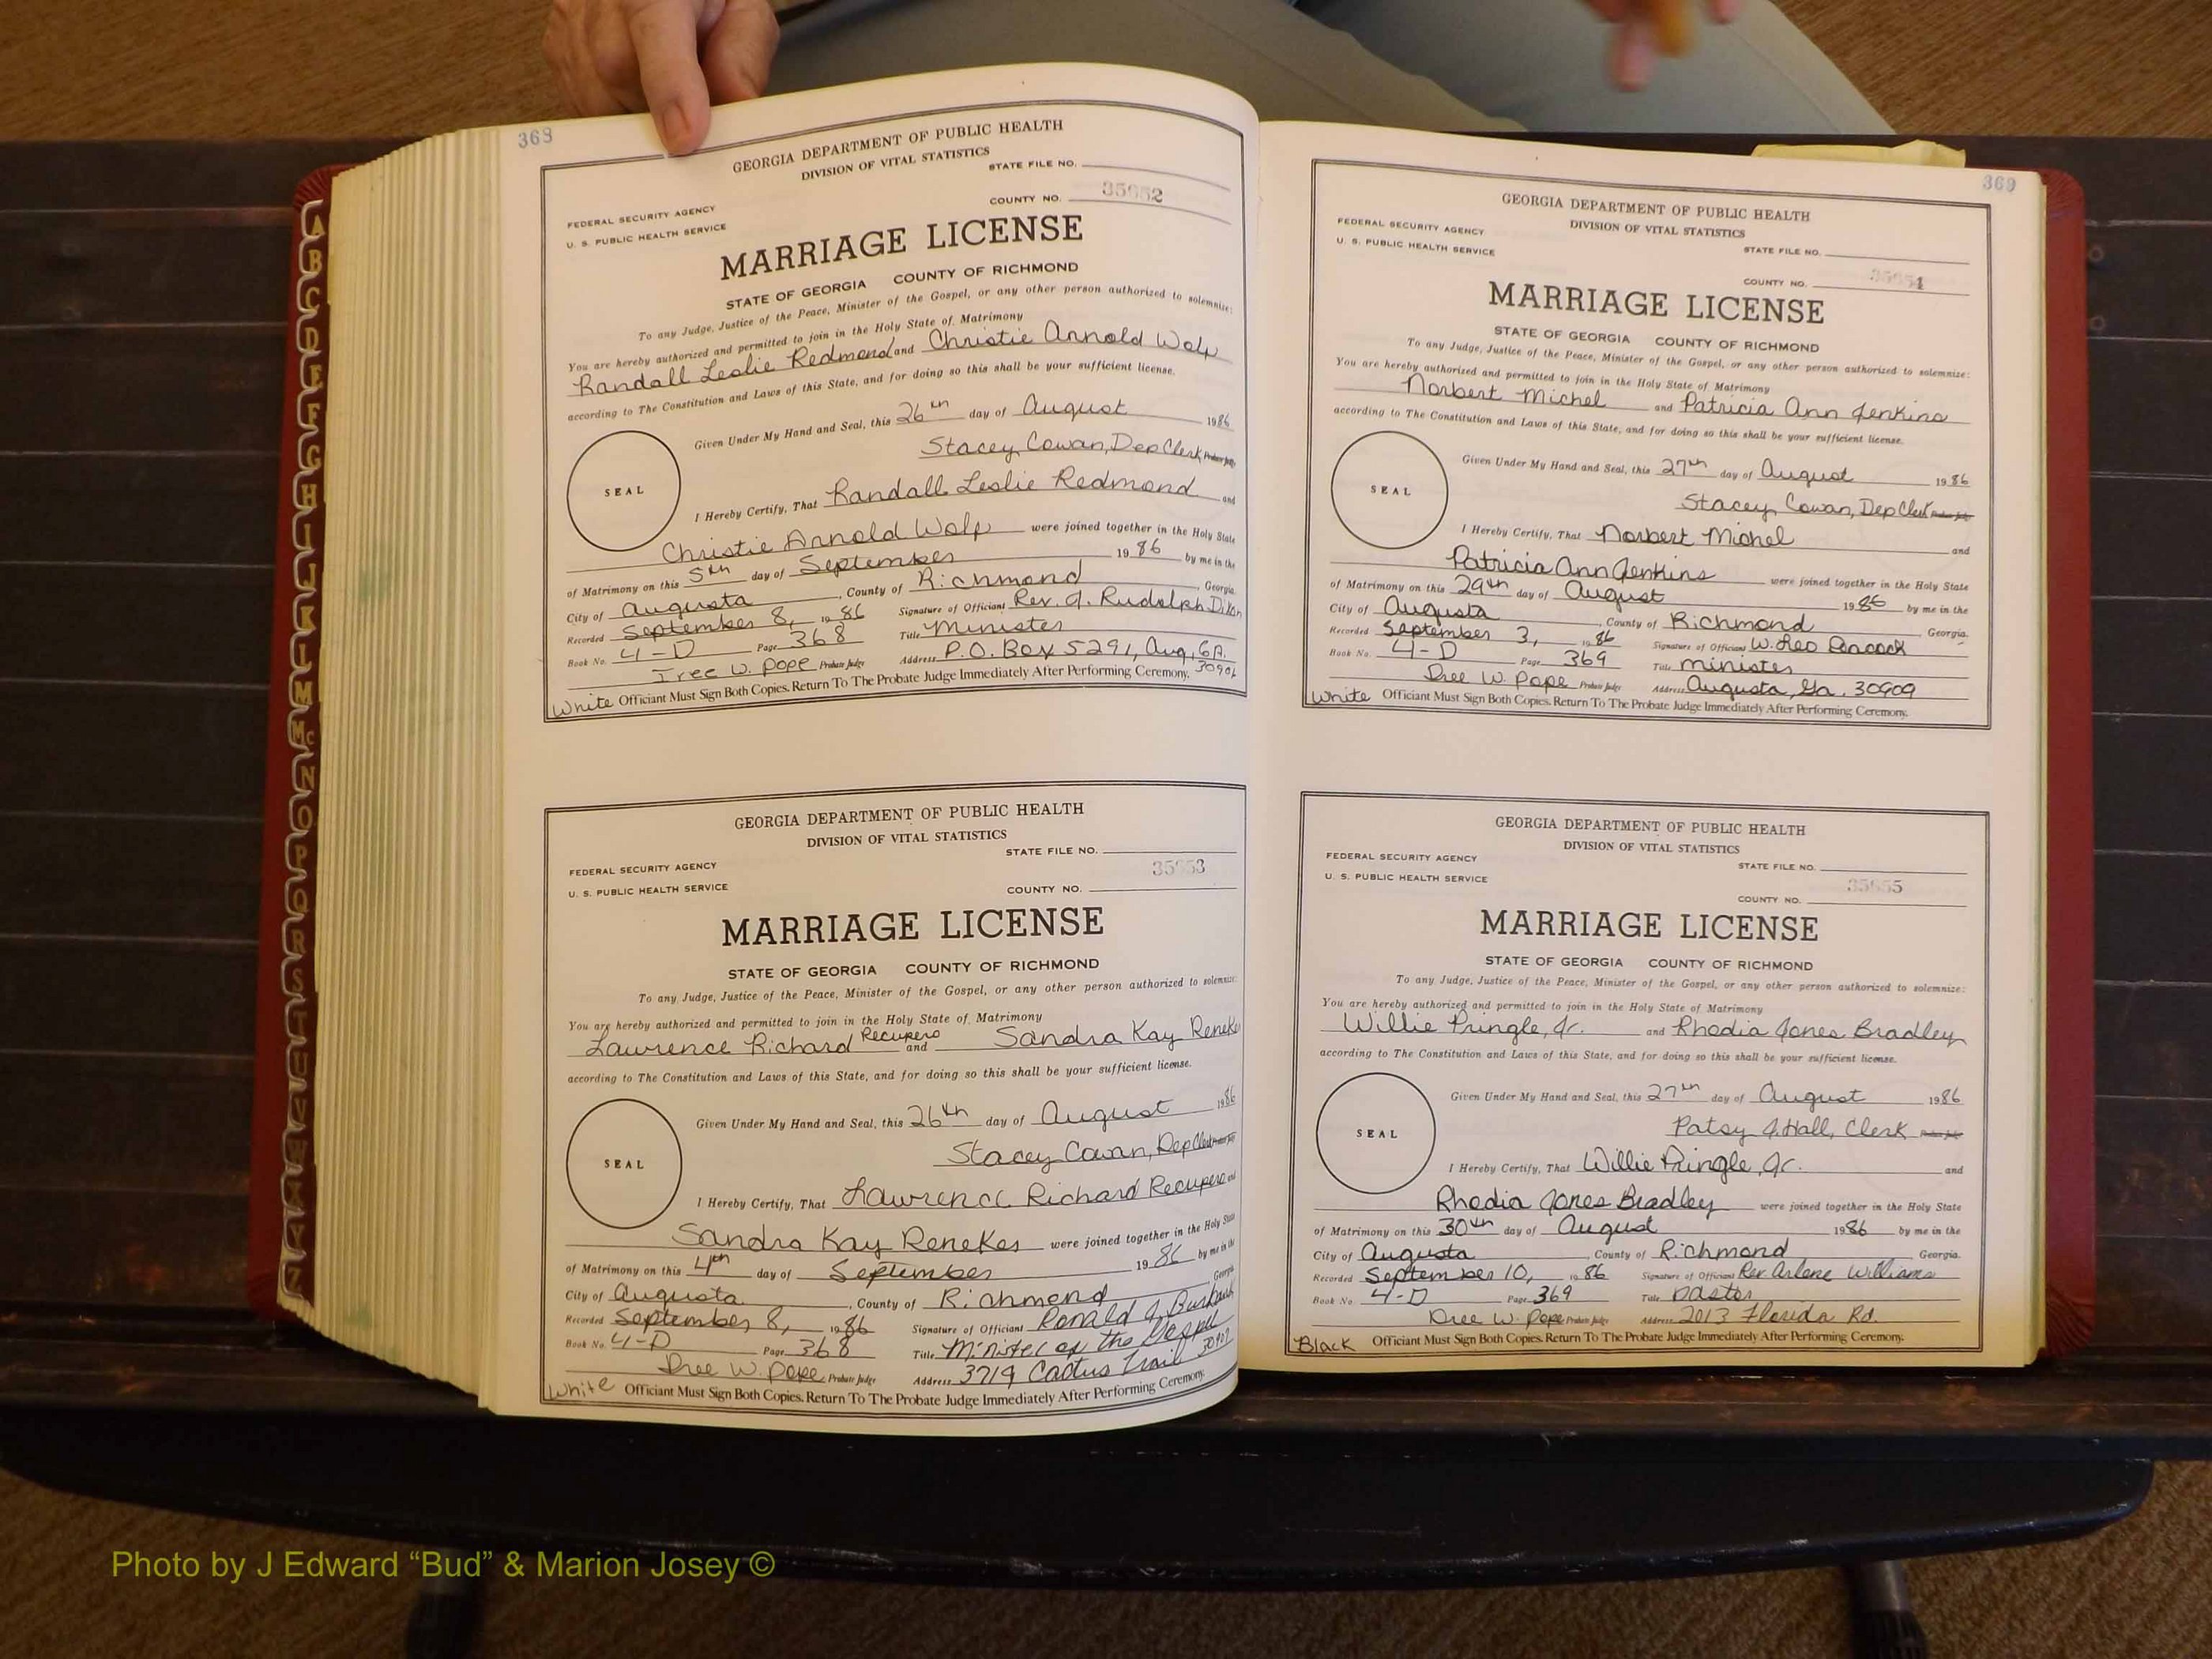 368
GEORGIA DEPARTMENT OF PUBLIC HEALTH
DIVISION OF VITAL STATISTICS
STATE FILE NO.
COUNTY NO. 35652
FEDERAL SECURITY AGENCY
U. S. PUBLIC HEALTH SERVICE
MARRIAGE LICENSE
STATE OF GEORGIA COUNTY OF RICHMOND
To any Judge, Justice of the Peace, Minister of the Gospel, or any other person authorized to solemnize:
You are hereby authorized and permitted to join in the Holy State of Matrimony
Randall Leslie Redmond and Christie Arnold Wolp
according to The Constitution and Laws of this State, and for doing so this shall be your sufficient license.
Given Under My Hand and Seal, this 26th day of August 1986
Stacey Cowan, Dep Clerk Probate Judge
SEAL
I Hereby Certify, That Randall Leslie Redmond and
Christie Arnold Wolp were joined together in the Holy State
of Matrimony on this 5th day of September 1986 by me in the
City of Augusta, County of Richmond, Georgia.
Recorded September 8, 1986 Signature of Officiant Rev. J. Rudolph Dixon
Book No. 4-D Page 368 Title Minister
Tree W. Pope Probate Judge Address P.O. Box 5291, Aug, GA. 30906
White Officiant Must Sign Both Copies. Return To The Probate Judge Immediately After Performing Ceremony.
GEORGIA DEPARTMENT OF PUBLIC HEALTH
DIVISION OF VITAL STATISTICS
STATE FILE NO.
COUNTY NO. 35653
FEDERAL SECURITY AGENCY
U. S. PUBLIC HEALTH SERVICE
MARRIAGE LICENSE
STATE OF GEORGIA COUNTY OF RICHMOND
To any Judge, Justice of the Peace, Minister of the Gospel, or any other person authorized to solemnize:
You are hereby authorized and permitted to join in the Holy State of Matrimony
Lawrence Richard Recupero and Sandra Kay Reneker
according to The Constitution and Laws of this State, and for doing so this shall be your sufficient license.
Given Under My Hand and Seal, this 26th day of August 1986
Stacey Cowan, Dep Clerk Probate Judge
SEAL
I Hereby Certify, That Lawrence Richard Recupero and
Sandra Kay Reneker were joined together in the Holy State
of Matrimony on this 4th day of September 1986 by me in the
City of Augusta, County of Richmond Georgia
Recorded September 8, 1986 Signature of Officiant Ronald J.
Book No. 4-D Page 368 Title Minister of the Gospel
Dree W. Pope Probate Judge Address 3719 Cactus Trail
White Officiant Must Sign Both Copies. Return To The Probate Judge Immediately After Performing Ceremony.
369
GEORGIA DEPARTMENT OF PUBLIC HEALTH
DIVISION OF VITAL STATISTICS
FEDERAL SECURITY AGENCY
U. S. PUBLIC HEALTH SERVICE
STATE FILE NO.
COUNTY NO. 35654
MARRIAGE LICENSE
STATE OF GEORGIA COUNTY OF RICHMOND
To any Judge, Justice of the Peace, Minister of the Gospel, or any other person authorized to solemnize:
You are hereby authorized and permitted to join in the Holy State of Matrimony
Norbert Michel and Patricia Ann Jenkins
according to The Constitution and Laws of this State, and for doing so this shall be your sufficient license.
Given Under My Hand and Seal, this 27th day of August 1986
Stacey Cowan, Dep Clerk Probate Judge
SEAL
I Hereby Certify, That Norbert Michel and
Patricia Ann Jenkins were joined together in the Holy State
of Matrimony on this 29th day of August 1986 by me in the
City of Augusta, County of Richmond, Georgia.
Recorded September 3, 1986 Signature of Officiant W. Leo Peacock
Book No. 4-D Page 369 Title minister
Dree W. Pope Probate Judge Address Augusta, Ga. 30909
White Officiant Must Sign Both Copies. Return To The Probate Judge Immediately After Performing Ceremony.
GEORGIA DEPARTMENT OF PUBLIC HEALTH
DIVISION OF VITAL STATISTICS
FEDERAL SECURITY AGENCY
U. S. PUBLIC HEALTH SERVICE
STATE FILE NO.
COUNTY NO. 35655
MARRIAGE LICENSE
STATE OF GEORGIA COUNTY OF RICHMOND
To any Judge, Justice of the Peace, Minister of the Gospel, or any other person authorized to solemnize:
You are hereby authorized and permitted to join in the Holy State of Matrimony
Willie Pringle, Jr. and Rhodia Jones Bradley
according to The Constitution and Laws of this State, and for doing so this shall be your sufficient license.
Given Under My Hand and Seal, this 27th day of August 1986
Patsy J. Hall, Clerk Probate Judge
SEAL
I Hereby Certify, That Willie Pringle, Jr. and
Rhodia Jones Bradley were joined together in the Holy State
of Matrimony on this 30th day of August 1986 by me in the
City of Augusta, County of Richmond, Georgia.
Recorded September 10, 1986 Signature of Officiant Rev Arlene Williams
Book No. 4-D Page 369 Title Pastor
Dree W. Pope Probate Judge Address 2013 Florida Rd.
Black Officiant Must Sign Both Copies. Return To The Probate Judge Immediately After Performing Ceremony.
A
B
C
D
E
F
G
H
I
J
K
L
M
Mc
N
O
P
Q
R
S
T
U
V
W
X
Y
Z
Photo by J Edward “Bud” & Marion Josey ©